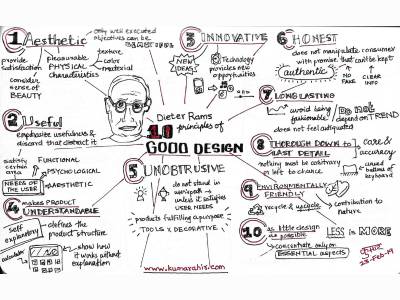 1 Aesthetic
only well executed
objectives can be
BEAUTIFUL
provide
satisfaction
pleasurable
PHYSICAL
characteristics
texture
color
material
consider
sense of
BEAUTY
2 Useful
emphasize usefulness &
discard that distract it
satisfy
certain
area
NEEDS OF THE USER
FUNCTIONAL
PSYCHOLOGICAL
AESTHETIC
3 INNOVATIVE
NEW
IDEAS!
Technology
provides new
opportunities
Dieter Rams
10 principles of
GOOD DESIGN
4 makes PRODUCT
UNDERSTANDABLE
Self
explanatory
defines the
product structure
calculator
show how
it works without
explanation
5 UNOBTRUSIVE
do not stand in
unless it
satisfies
USER NEEDS
products fulfilling a purpose
TOOLS x DECORATIVE
www.kumarahir.com
6 HONEST
does not manipulate consumer
with promise that can't be kept
authentic
NO
FAKE
CLEAR
INFO
7 LONG LASTING
avoid being
fashionable
DO NOT
depend on TREND
does not feel antiquated
8 THOROUGH DOWN to
LAST DETAIL
care &
accuracy
nothing must be arbitrary
or left to chance
buttons
of keyboard
9 ENVIRONMENTALLY
FRIENDLY
recycle & upcycle
contribution to
nature
10 as little design
as possible
LESS is MORE
concentrate only on
ESSENTIAL ASPECTS
23-Feb-19